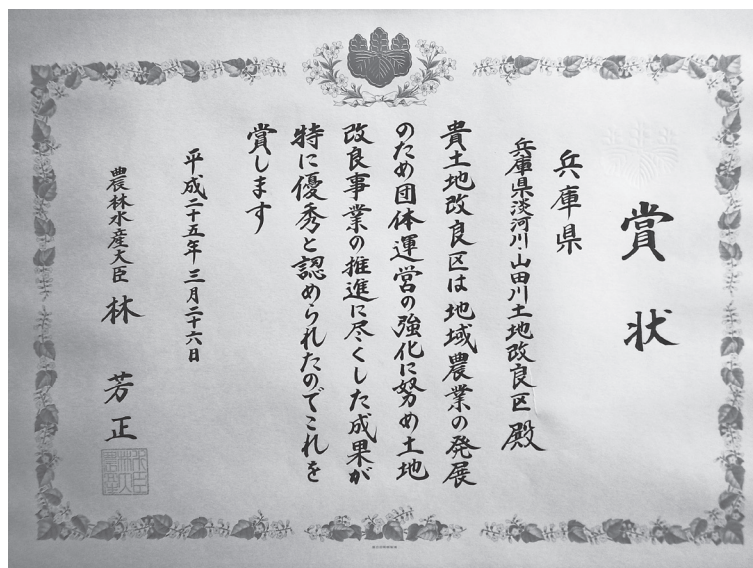 賞状
兵庫県
兵庫県淡河川・山田川土地改良区殿
貴土地改良区は地域農業の発展
のため団体運営の強化に努め土地
改良事業の推進に尽くした成果が
特に優秀と認められたのでこれを
賞します
平成二十五年三月二十六日
農林水産大臣 林 芳正